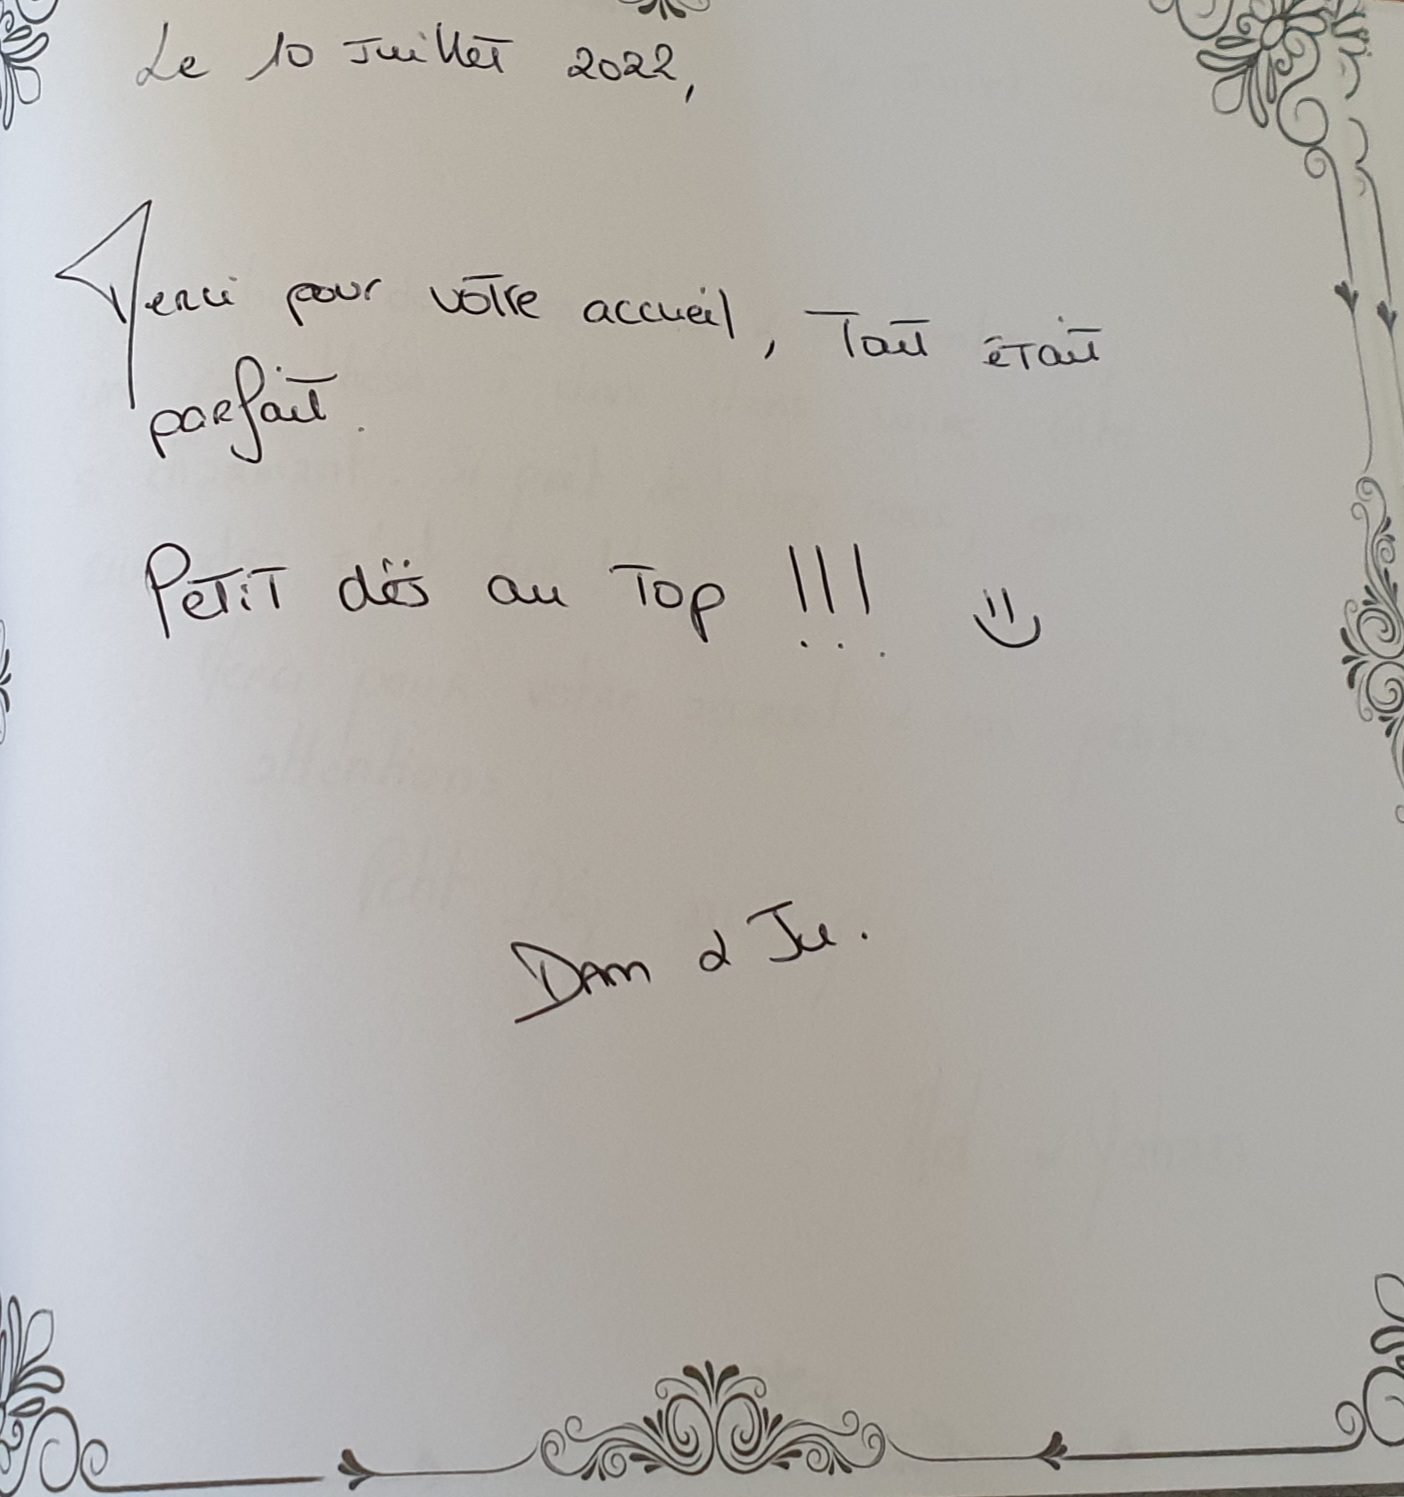 Le 10 Juillet 2022,
Merci pour votre accueil, Tout était
parfait.
Petit dèj au Top !!!
Dam & Ju.